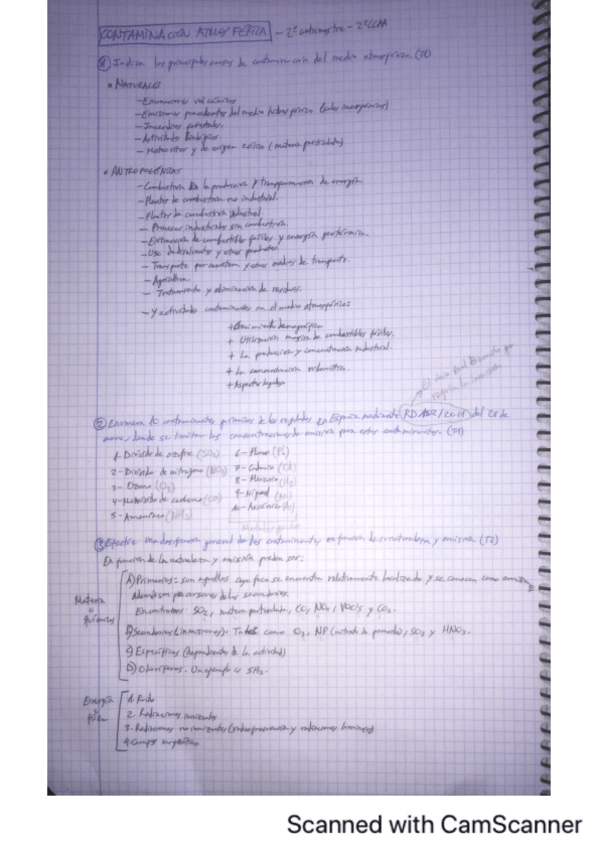 CONTAMINACIÓN ATMOSFÉRICA - 2º cuatrimestre - 2º CCAA
① Indica las principales causas de contaminación del medio atmosférico. (T1)
• NATURALES
- Emisiones volcánicas
- Emisiones procedentes del medio hidrosférico
- Incendios forestales.
- Actividades biológicas.
- Meteoritos y de origen (materia particulada)
• ANTROPOGÉNICAS
- Combustión en la producción y transformación de energía.
- Plantas de combustión no industrial.
- Plantas de combustión industrial.
- Procesos industriales sin combustión.
- Extracción de combustibles fósiles y energía geotérmica.
- Uso de disolventes y otros productos.
- Transporte por carretera y otros medios de transporte.
- Agricultura.
- Tratamiento y eliminación de residuos.
- Y actividades contaminantes en el medio atmosférico
+ Crecimiento demográfico
+ Utilización masiva de combustibles fósiles.
+ La producción y concentración industrial.
+ La concentración urbanística.
+ Aspectos legales
El único Real Decreto que regula la inmisión
② Enumera 10 contaminantes primarios de los regulados en España mediante RD 102/2011 del 28 de
enero, donde se limitan las concentraciones de emisión para estos contaminantes. (T1)
1- Dióxido de azufre (SO₂) 6- Plomo (Pb)
2- Dióxido de nitrógeno (NO₂) 7- Cadmio (Cd)
3- Ozono (O₃) 8- Mercurio (Hg)
4- Monóxido de carbono (CO) 9- Níquel (Ni)
5- Amoníaco (NH₃) 10- Arsénico (As)
Metales pesados
③ Efectúe una clasificación general de los contaminantes en función de su naturaleza y emisión. (T2)
En función de la naturaleza y emisión pueden ser:
Materia o químicos
A) Primarios: son aquellos cuyo foco se encuentra relativamente localizado y se conocen como emisiones.
Además son precursores de los secundarios.
Encontramos: SO₂, materia particulada, CO, NOx, VOC's y CO₂.
B) Secundarios (inmisiones). Tales como O₃, NP, SO₃ y HNO₃.
C) Específicos (dependientes de la actividad)
D) Odoríferos. Un ejemplo es SH₂.
Energía o física
1. Ruido
2. Radiaciones ionizantes
3. Radiaciones no ionizantes (radiofrecuencia y radiaciones lumínicas)
4. Campos magnéticos
Scanned with CamScanner